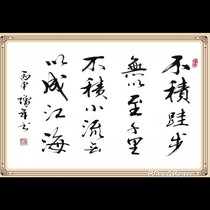 不積跬步
無以至千里
不積小流無
以成江海
丙申